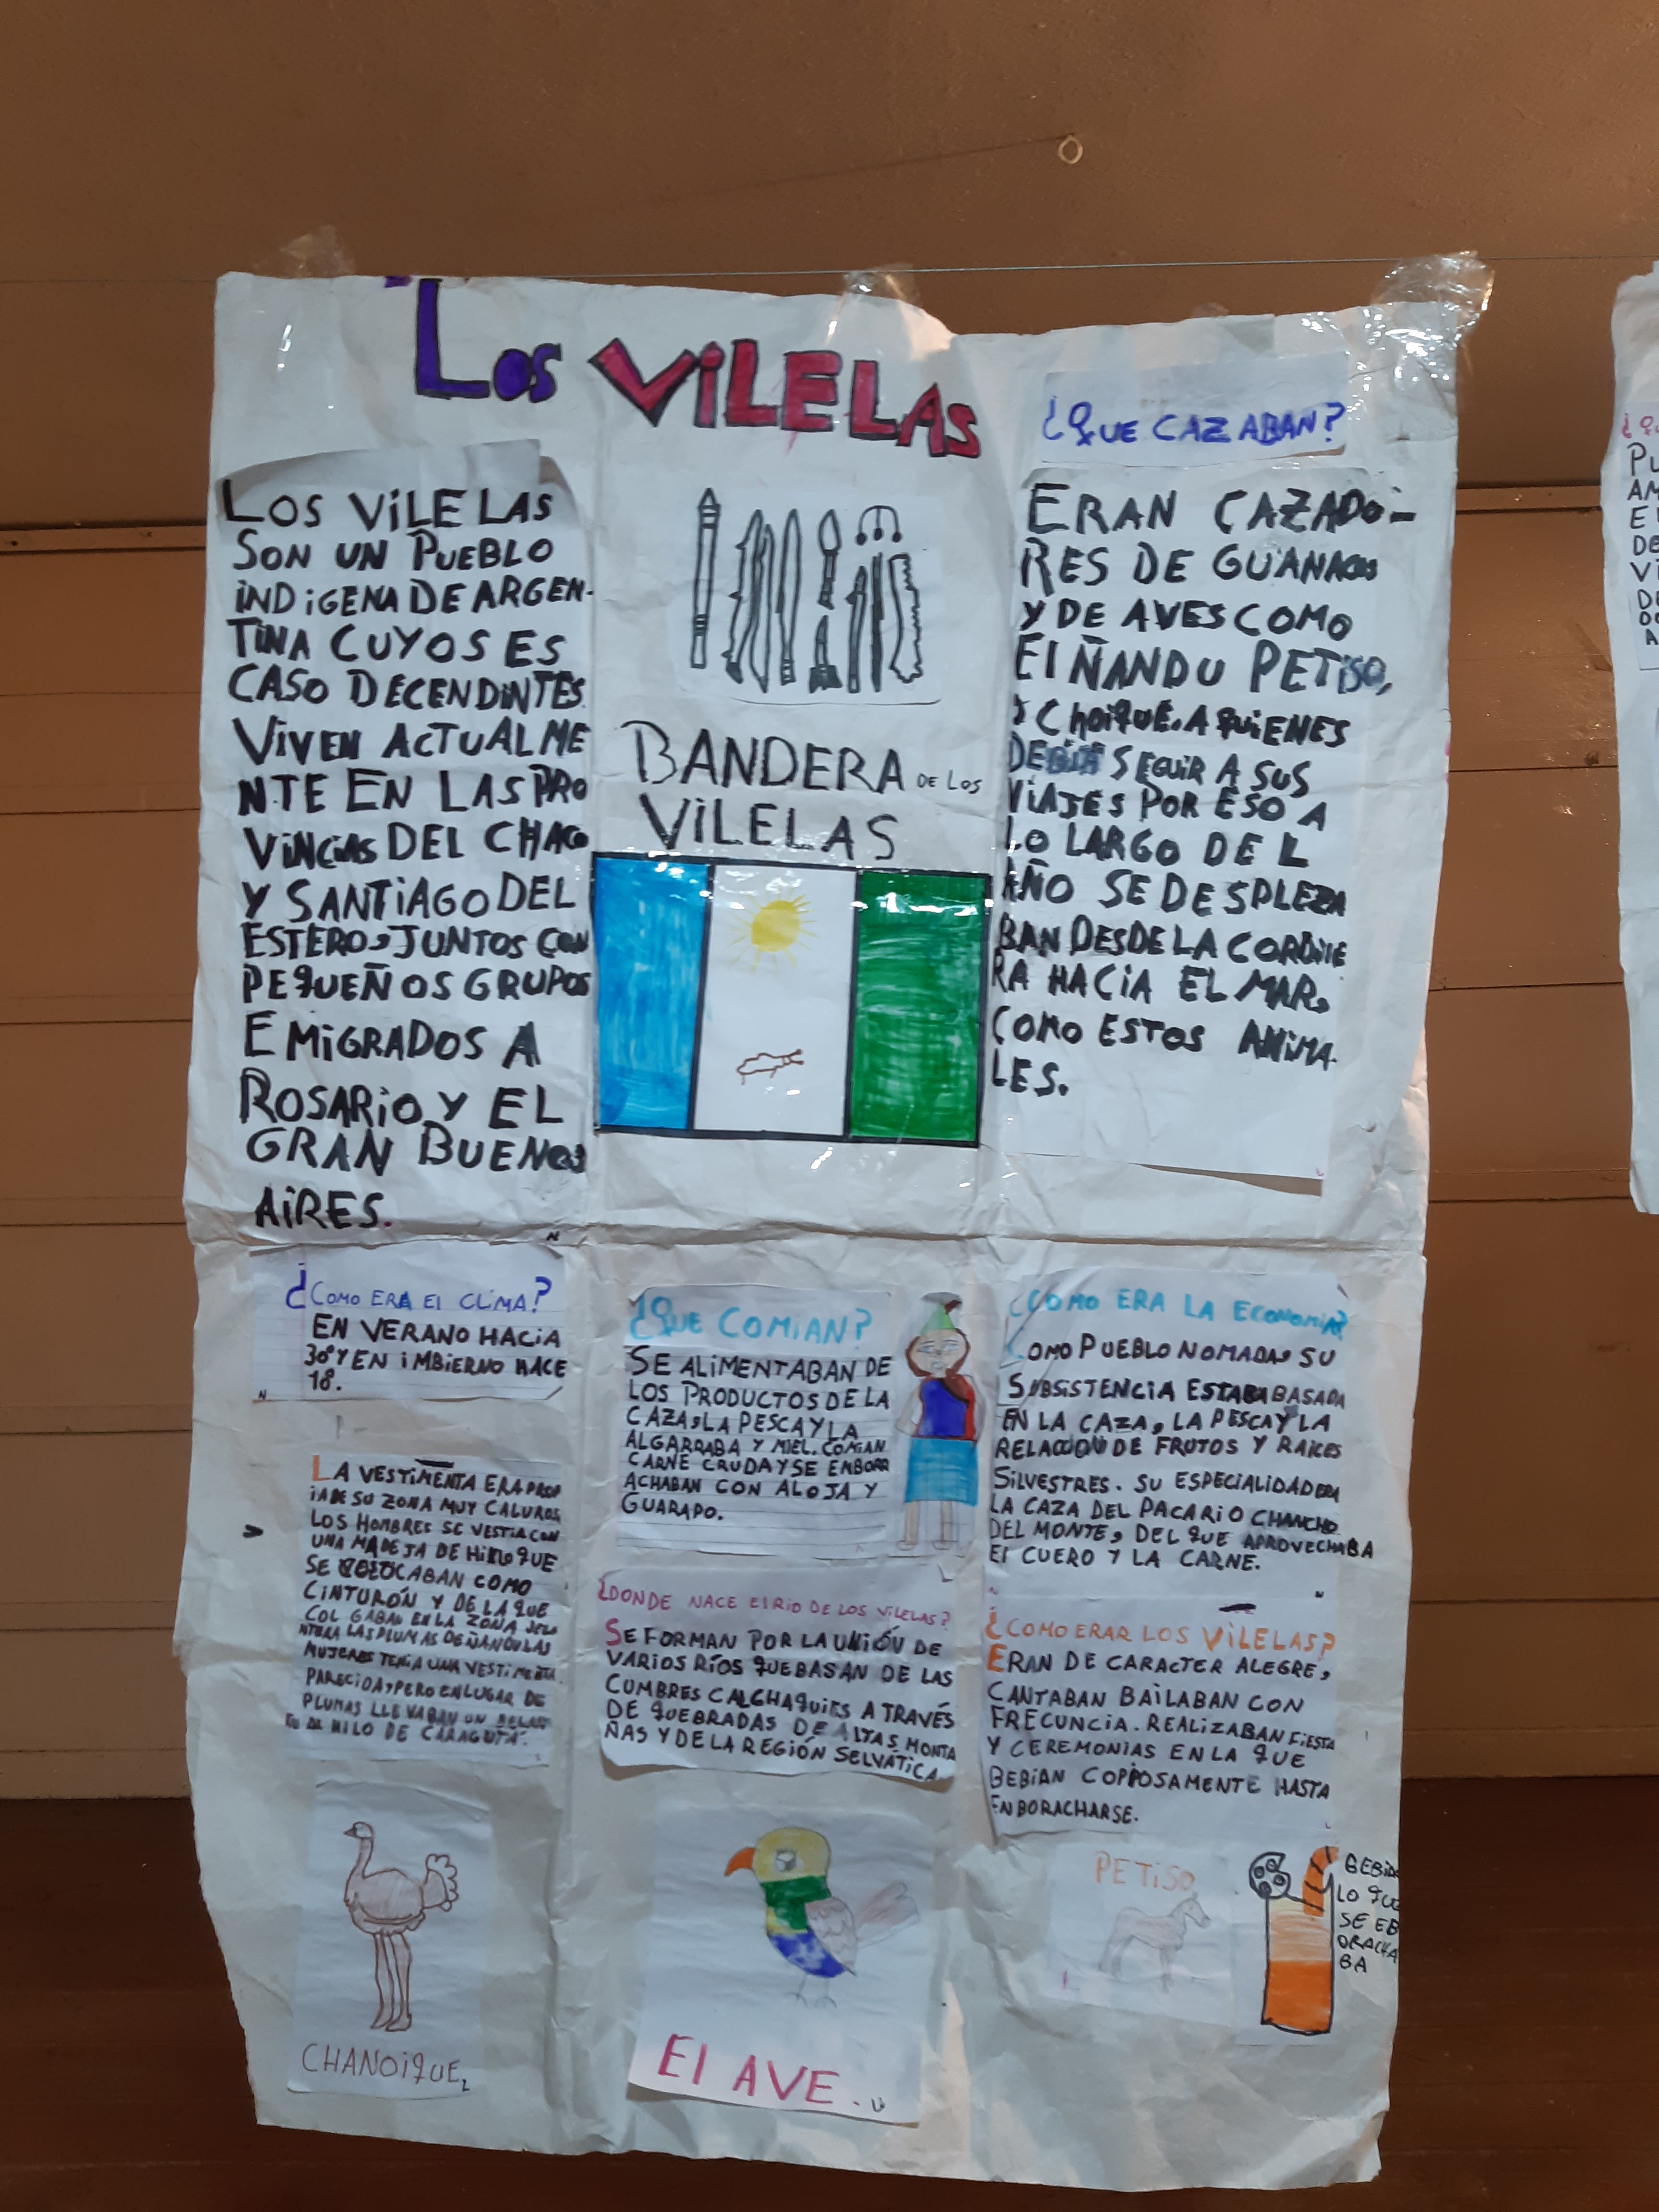 Los ViLELAS
LOS ViLELAS
SON UN PUEBLO
iNDiGENA DE ARGEN-
TiNA CUYOS ES
CASO DECENDiNTES
ViVEN ACTUALME
NTE EN LAS PRO
ViNCiAS DEL CHACO
Y SANTiAGO DEL
ESTERO, JUNTOS CON
PEQUEÑOS GRUPOS
EMiGRADOS A
ROSARiO Y EL
GRAN BUENOS
AiRES.
BANDERA DE LOS
ViLELAS
¿QUE CAZABAN?
ERAN CAZADO-
RES DE GUANACOS
Y DE AVES COMO
El ÑANDU PETiSO,
CHOiQUE. A QUiENES
DEBiA SEGUiR A SUS
ViAJES POR ESO A
LO LARGO DEL
AÑO SE DESPLEZA
BAN DESDE LA CORDiLLE
RA HACiA EL MAR,
COMO ESTOS ANiMA-
LES.
¿COMO ERA El CLiMA?
EN VERANO HACiA
30° Y EN iMBiERNO HACE
18.
LA VESTiMENTA ERA PROP
iA DE SU ZONA MUY CALUROS
LOS HOMBRES SE VESTiA CON
UNA MADEJA DE HiLO QUE
SE COLOCABAN COMO
CiNTURÓN Y DE LA QUE
COLGABAN EN LA ZONA DELA
NTERA LAS PLUMAS DE ÑANDU LAS
MUJERES TENiA UNA VESTiMENTA
PARECiDA, PERO EN LUGAR DE
PLUMAS LLEVABAN UN
HiLO DE CARAGUTÁ.
¿QUE COMiAN?
SE ALiMENTABAN DE
LOS PRODUCTOS DE LA
CAZA, LA PESCA Y LA
ALGARRABA Y MiEL. COMiAN
CARNE CRUDA Y SE EMBORR
ACHABAN CON ALOJA Y
GUARAPO.
¿DONDE NACE El RiO DE LOS ViLELAS?
SE FORMAN POR LA UNiÓN DE
VARiOS RÍOS QUE BASAN DE LAS
CUMBRES CALCHAQUiES A TRAVÉS
DE QUEBRADAS DE ALTAS MONTA
ÑAS Y DE LA REGiÓN SELVÁTiCA.
¿COMO ERA LA ECONOMiA?
COMO PUEBLO NOMADA, SU
SUBSiSTENCiA ESTABA BASADA
EN LA CAZA, LA PESCA Y LA
RELACCiON DE FRUTOS Y RAiCES
SiLVESTRES. SU ESPECiALiDAD ERA
LA CAZA DEL PACARi O CHANCHO
DEL MONTE, DEL QUE APROVECHABA
El CUERO Y LA CARNE.
¿COMO ERAR LOS ViLELAS?
ERAN DE CARACTER ALEGRE,
CANTABAN BAiLABAN CON
FRECUNCiA. REALiZABAN FiESTA
Y CEREMONiAS EN LA QUE
BEBiAN COPiOSAMENTE HASTA
ENBORACHARSE.
CHANOiQUE
El AVE.
PETiSO
BEBiDA
LO QUE
SE EB
ORACHA
BA